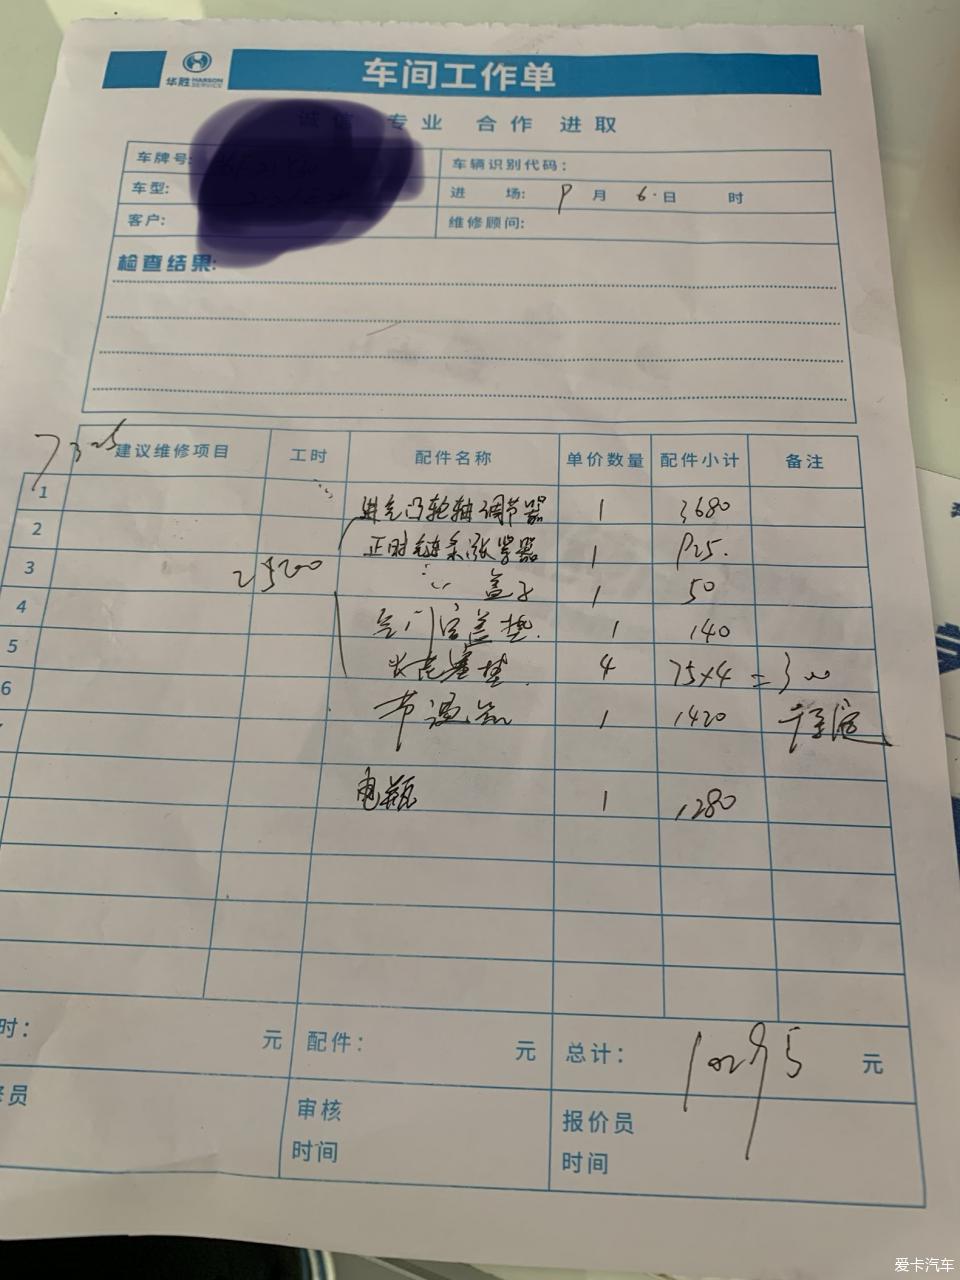 华胜 HARSON SERVICE 车间工作单
诚信 专业 合作 进取
车牌号: 车辆识别代码:
车型: 进 场: 9 月 6 日 时
客户: 维修顾问:
检查结果:
7325
建议维修项目 工时 配件名称 单价数量 配件小计 备注
1 进气凸轮轴调节器 1 3680
2 正时链条涨紧器 1 925.
3 2500 盖子 1 50
4 气门室盖垫 1 140
5 火花塞 4 75×4 = 300
6 节温器 1 1420
电瓶 1 1280
时: 元 配件: 元 总计: 10295 元
员 审核 报价员
时间 时间
爱卡汽车